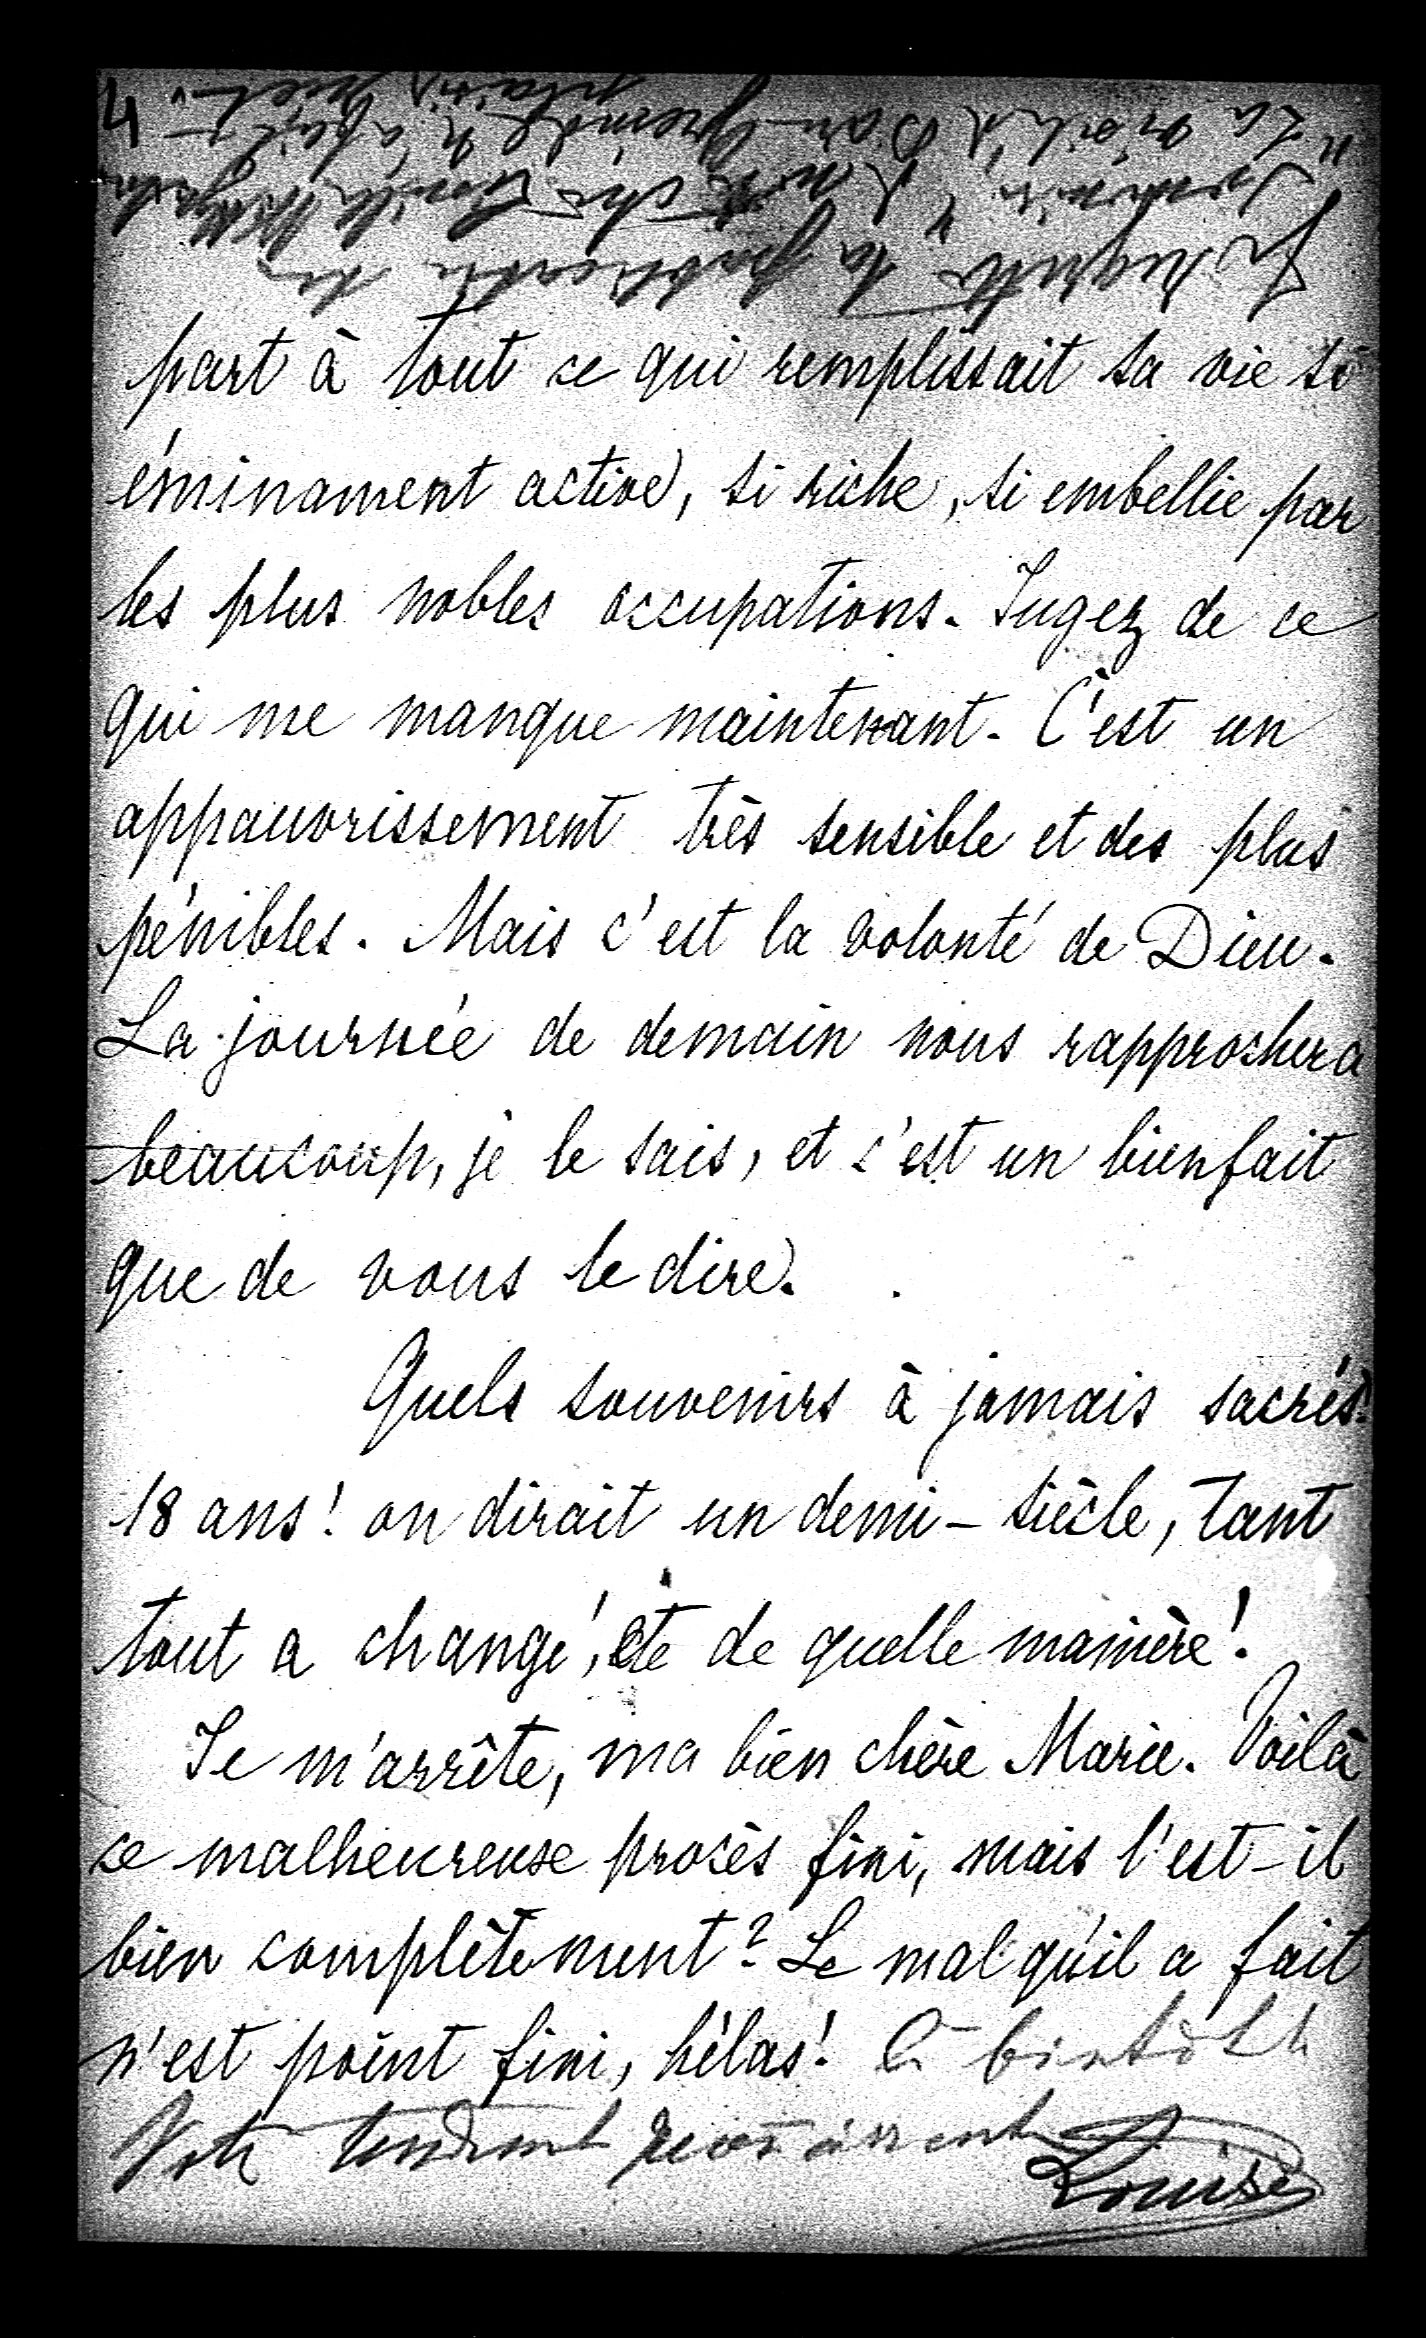 part à tout ce qui remplissait sa vie si
éminament active, si riche, si embellie par
les plus nobles occupations. Jugez de ce
qui me manque maintenant. C'est un
appauvrissement très sensible et des plus
pénibles. Mais c'est la volonté de Dieu.
La journée de demain nous rapprochera
beaucoup, je le sais, et c'est un bienfait
que de vous le dire.
Quels souvenirs à jamais sacrés.
18 ans! on dirait un demi-siècle, tant
tout a changé, et de quelle manière!
Je m'arrête, ma bien chère Marie. Voilà
ce malheureuse procès fini, mais l'est-il
bien complètement? Le mal qu'il a fait
n'est point fini, hélas! A bientôt
Votre tendrement
Louise
Je regrette la publication des